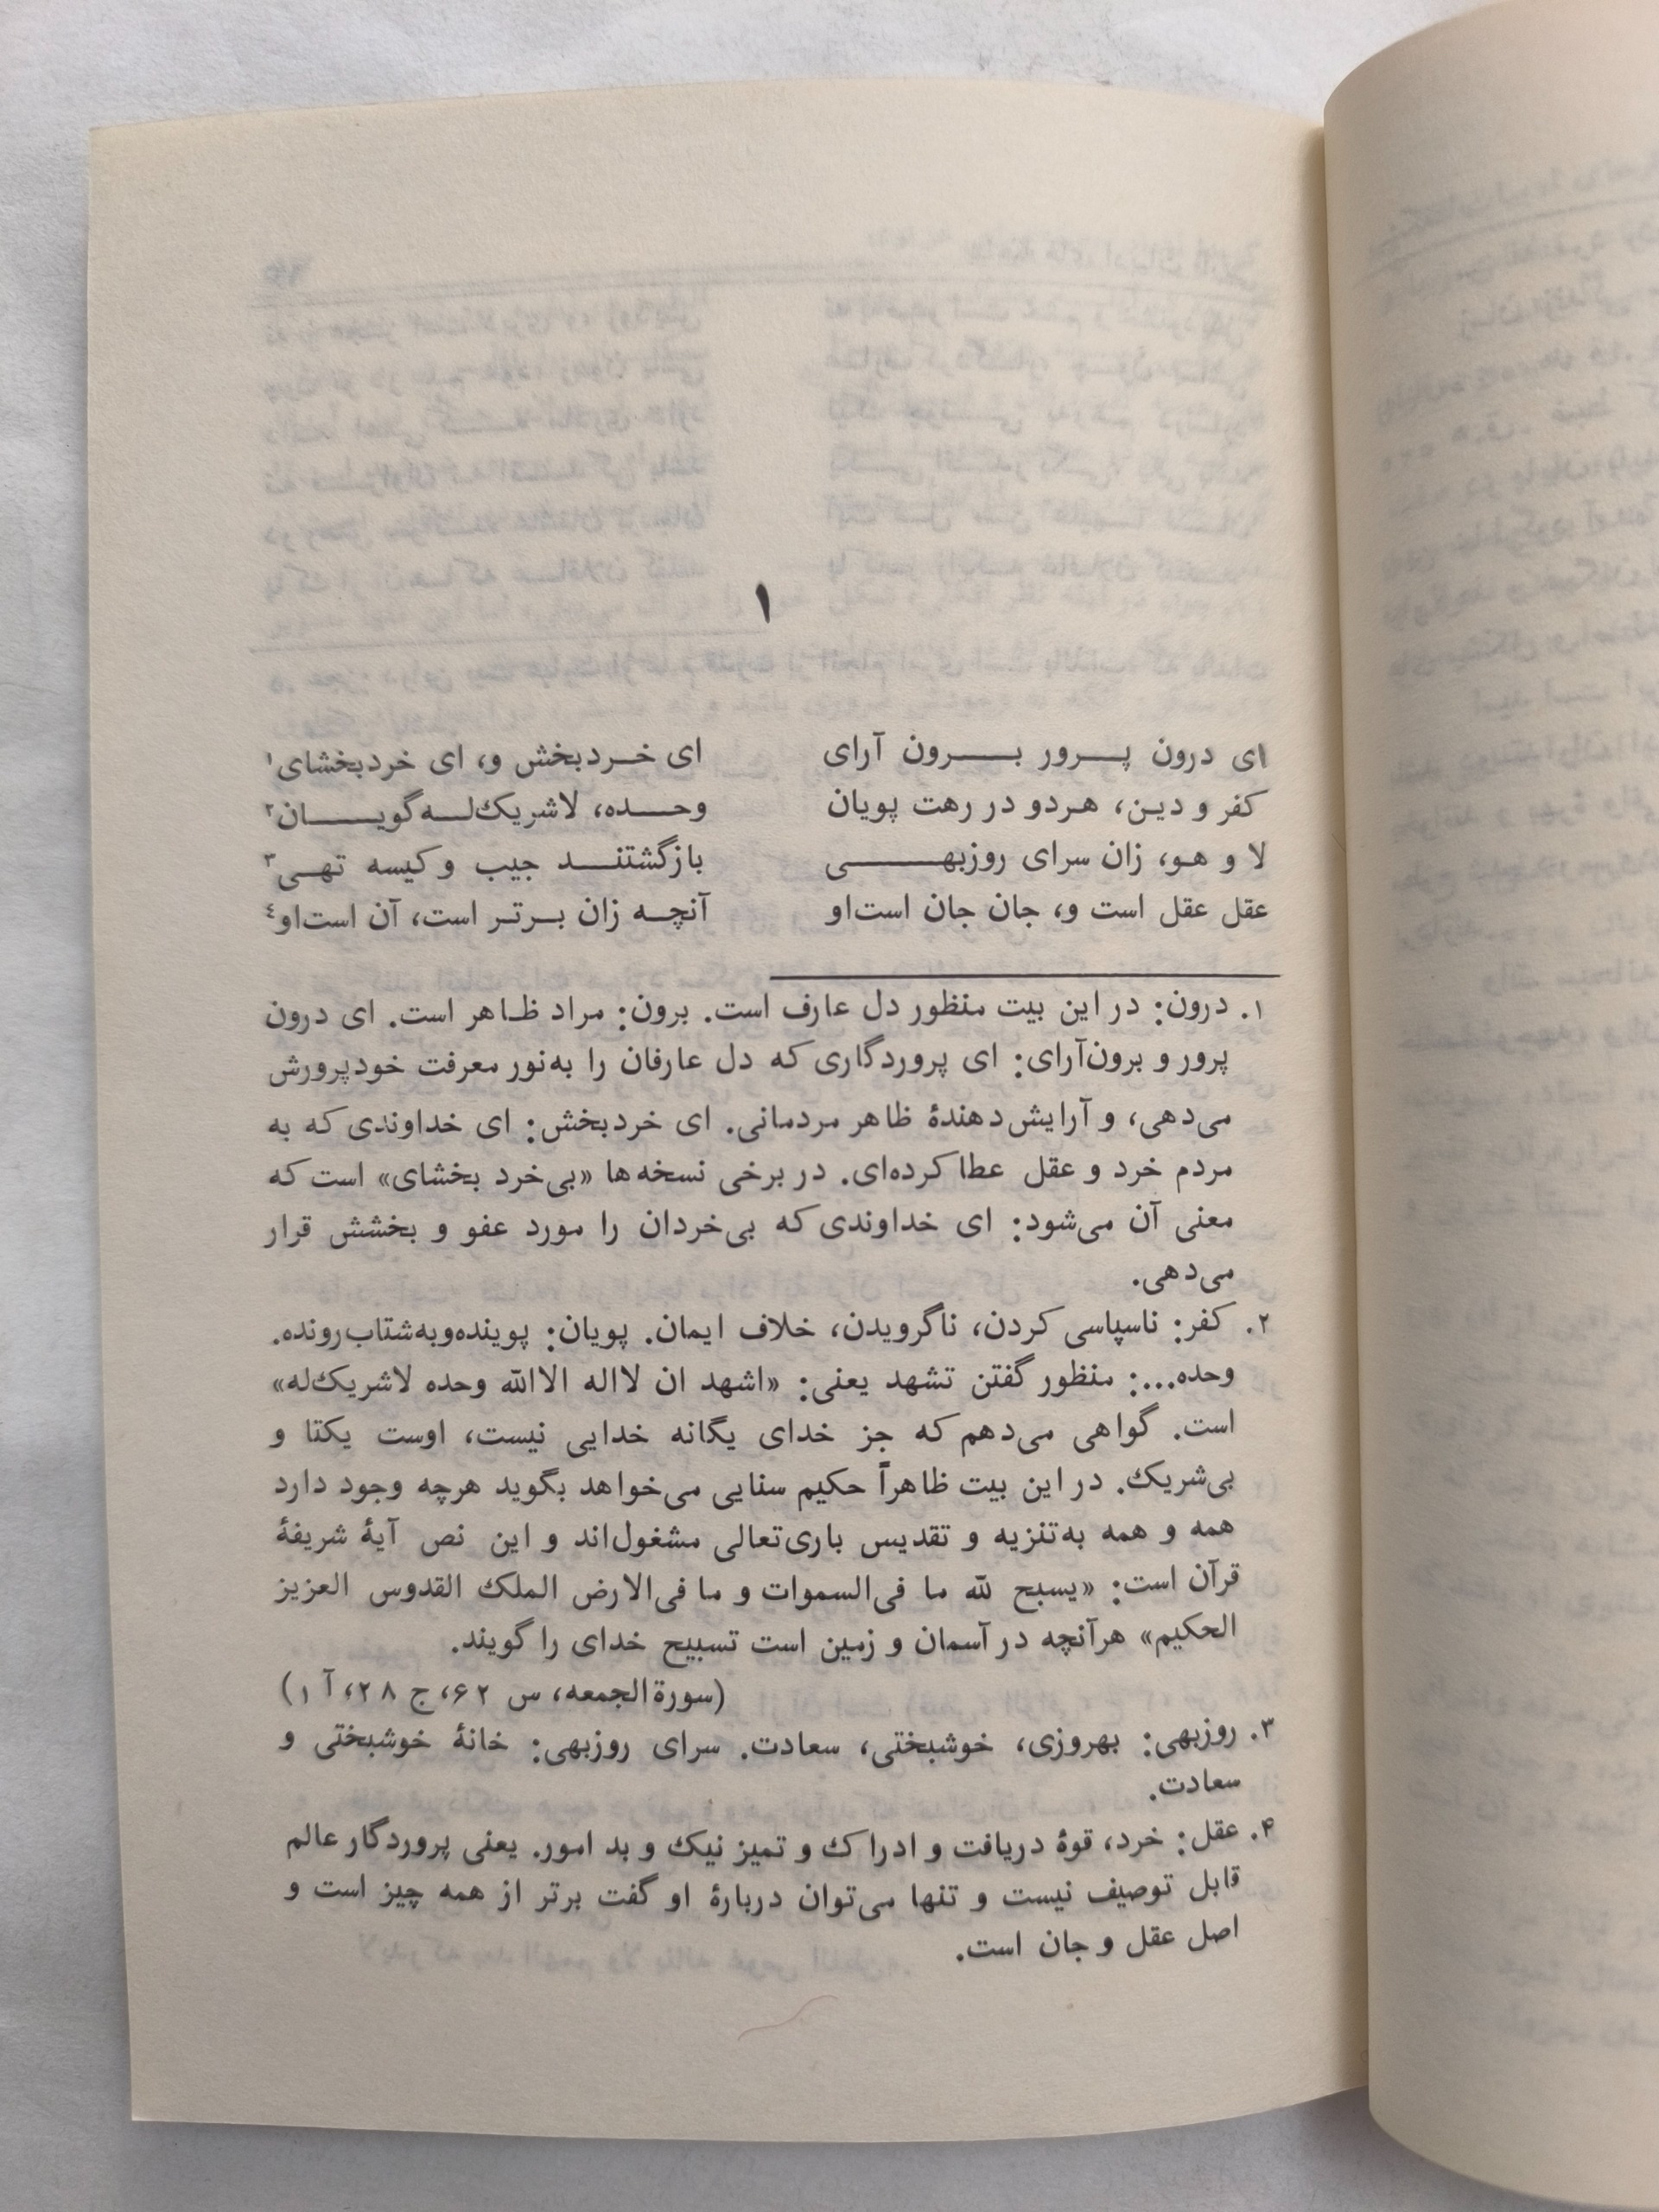 ۱
ای درون پرور برون آرای ای خردبخش و، ای خردبخشای۱
کفر و دین، هردو در رهت پویان وحده، لاشریک‌له‌گویان۲
لا و هو، زان سرای روزبهی بازگشتند جیب و کیسه تهی۳
عقل عقل است و، جان جان است‌او آنچه زان برتر است، آن است‌او۴
۱. درون: در این بیت منظور دل عارف است. برون: مراد ظاهر است. ای درون
پرور و برون‌آرای: ای پروردگاری که دل عارفان را به‌نور معرفت خودپرورش
می‌دهی، و آرایش‌دهندهٔ ظاهر مردمانی. ای خردبخش: ای خداوندی که به
مردم خرد و عقل عطا کرده‌ای. در برخی نسخه‌ها «بی‌خرد بخشای» است که
معنی آن می‌شود: ای خداوندی که بی‌خردان را مورد عفو و بخشش قرار
می‌دهی.
۲. کفر: ناسپاسی کردن، ناگرویدن، خلاف ایمان. پویان: پوینده‌وبه‌شتاب‌رونده.
وحده...: منظور گفتن تشهد یعنی: «اشهد ان لااله الاالله وحده لاشریک‌له»
است. گواهی می‌دهم که جز خدای یگانه خدایی نیست، اوست یکتا و
بی‌شریک. در این بیت ظاهراً حکیم سنایی می‌خواهد بگوید هرچه وجود دارد
همه و همه به‌تنزیه و تقدیس باری‌تعالی مشغول‌اند و این نص آیهٔ شریفهٔ
قرآن است: «یسبح لله ما فی‌السموات و ما فی‌الارض الملک القدوس العزیز
الحکیم» هرآنچه در آسمان و زمین است تسبیح خدای را گویند.
(سورةالجمعه، س ۶۲، ج ۲۸، آ ۱)
۳. روزبهی: بهروزی، خوشبختی، سعادت. سرای روزبهی: خانهٔ خوشبختی و
سعادت.
۴. عقل: خرد، قوهٔ دریافت و ادراک و تمیز نیک و بد امور. یعنی پروردگار عالم
قابل توصیف نیست و تنها می‌توان دربارهٔ او گفت برتر از همه چیز است و
اصل عقل و جان است.